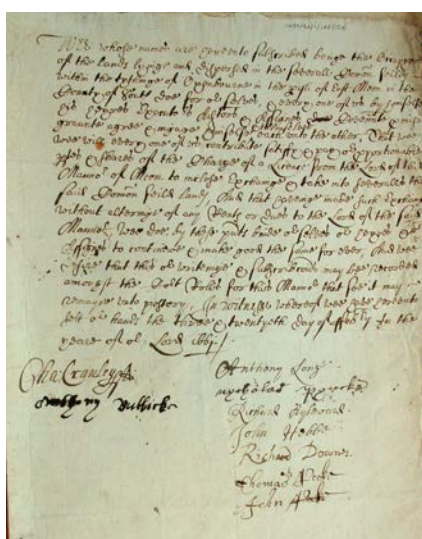 WEE whose names are hereunto subscribed beinge the
of the lands lyeinge and dispersed in the severall Comon feilds
within the tythinge of in the pish of East Meon in the
County of South doe for or selves & every one of us by himselfe
his heyres Executors & Assignes Covenante pmise
graunte agree & ingage himselfe each unto the other, That wee
wee will every one of us contribute
ptes & shares of the Charge of a Lycense from the Lord of the
Mannor of Meon to inclose Exchange & take into severaltie the
said Comon feild lands, And that haveinge made such Exchange
without alteringe of any Rents or dues to the Lord of the said
Mannor, wee doe by these pnts binde or selves or heyres &
Assignes to continue & make good the same for ever, And wee
desire that this or writeinge & subscribcon may bee recorded
amongst the Court Rolles for this Mannor that soe it may
remayne unto postery, In witness whereof wee have hereunto
sett or hands the three & twentyeth day of in the
yeare of or Lord 1661
Cha: Cranley
Anthony
Anthony Lang
nycholas
Richard
John Hebbe
Richard Downer
Thomas
John